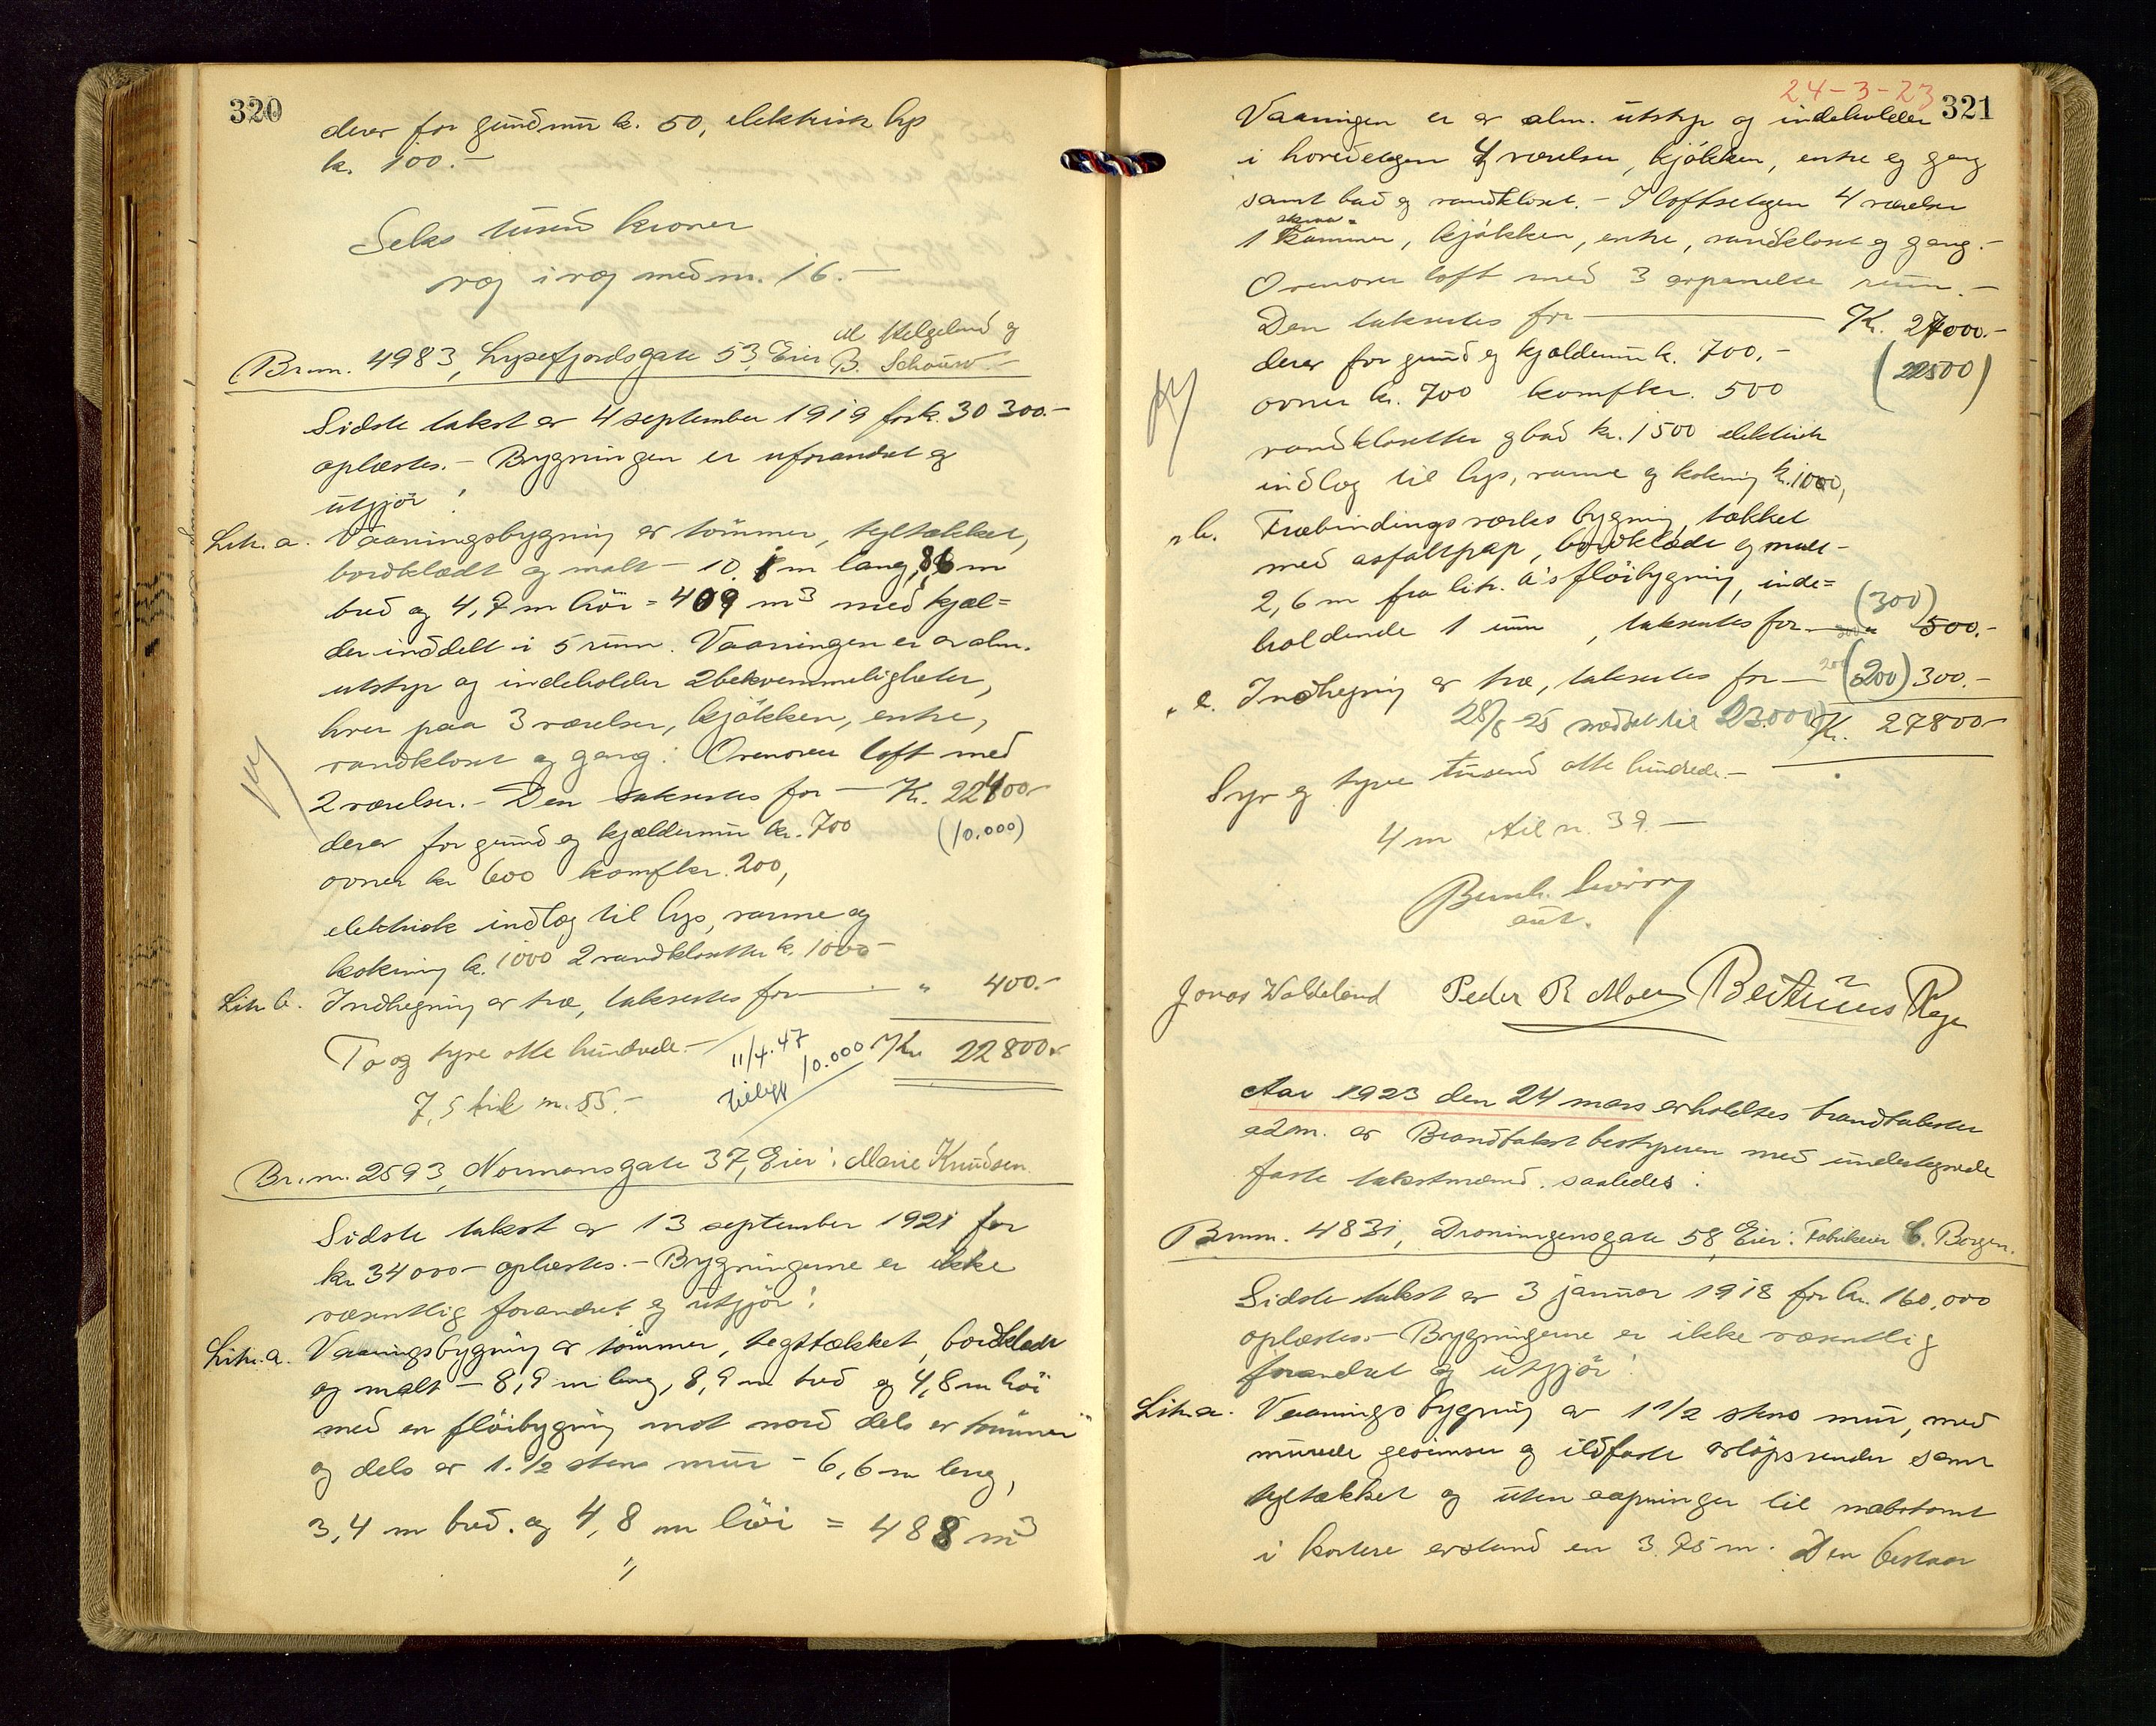 320
derav for grundmur kr. 50, elektrisk lys
kr. 100.-
Seks tusend kroner
væg i væg med nr. 16.-
Br.nr. 4983, Lysefjordsgate 53, Eier M. Helgeland og
B. Schouw.-
Sidste takst av 4 september 1919 for kr. 30 300.-
oplæstes.- Bygningen er uforandret og
utgjör:
Litr. a. Vaaningsbygning av tömmer, tegltækket,
bordklædt og malt - 10. m lang, 8,6 m
bred og 4,7 m höi = 409 m³ med kjæl=
der inddelt i 5 rum. Vaaningen er av alm.
utstyr og indeholder 2 bekvemmeligheter,
hver paa 3 værelser, kjökken, entre,
vandkloset og gang. Ovenover loft med
2 værelser.- Den taksertes for - Kr. 22400.-
derav for grund og kjældermur kr. 700 (10.000)
ovner kr 600 komf kr. 200,
elektrisk indlæg til lys, varme og
kokning kr. 1000 2 vandklosetter kr. 1000.-
Litr b. Indhegning av træ, taksertes for - " 400.-
To og tyve otte hundrede.- 11/4.47 10.000 Kr. 22800.-
7,5 til nr. 55.- tillegg
Br.nr. 2593, Normansgate 37, Eier: Marie Knudsen.
Sidste takst av 13 september 1921 for
kr. 34 000- oplæstes.- Bygningerne er ikke
væsentlig forandret og utgjör:
Litr. a. Vaaningsbygning av tömmer, tegltækket, bordklædt
og malt - 8,9 m lang, 8,9 m bred og 4,8 m höi
med en flöibygning mot nord dels av tömmer
og dels av 1 1/2 stens mur - 6,6 m lang,
3,4 m bred. og 4,8 m höi = 488 m³
24-3-23
321
Vaaningen er av alm. utstyr og indeholder
i hovedetagen 4 værelser, kjökken, entre og gang
samt bad og vandkloset.- I loftsetagen 4 værelser
skraa=
1 kammer, kjökken, entre, vandkloset og gang.-
Ovenover loft med 3 avpanelte rum.-
Den taksertes for - Kr. 27000.-
derav for grund og kjældermur kr. 700.- (22500)
ovner kr. 700 komf kr. 500
vandklosetter og bad kr. 1500 elektrisk
indlæg til lys, varme og kokning kr. 1000,
" b. Træbindingsverks bygning, tækket
med asfaltpap, bordklædt og malt-
2,6 m fra litr. a's flöibygning, inde=
holdende 1 rum, taksertes for - (300) 500.-
" c. Indhegning av træ, taksertes for - (200) 300.-
28/8 25 nedsat til 23.000) Kr. 27800.-
Syv og tyve tusend otte hundrede.-
4 m til nr. 39.-
Jonas Waldeland Peder R Moen Berthinus Rage
Aar 1923 den 24 mars avholdtes brandtakster
adm. av Brandtakst bestyreren med undertegnede
faste takstmænd. saaledes:
Brnr. 4831, Droningensgate 58, Eier: Fabrikeier C. Borgen.
Sidste takst av 3 januar 1918 for kr. 160,000
oplæstes.- Bygningerne er ikke væsentlig
forandret og utgjör:
Litr. a. Vaanings bygning av 1 1/2 stens mur, med
murede gesimser og ildfaste avlöpsrender samt
tegltækket og uten aapninger til nabotomt
i kortere avstand en 3.75 m. Den bestaar